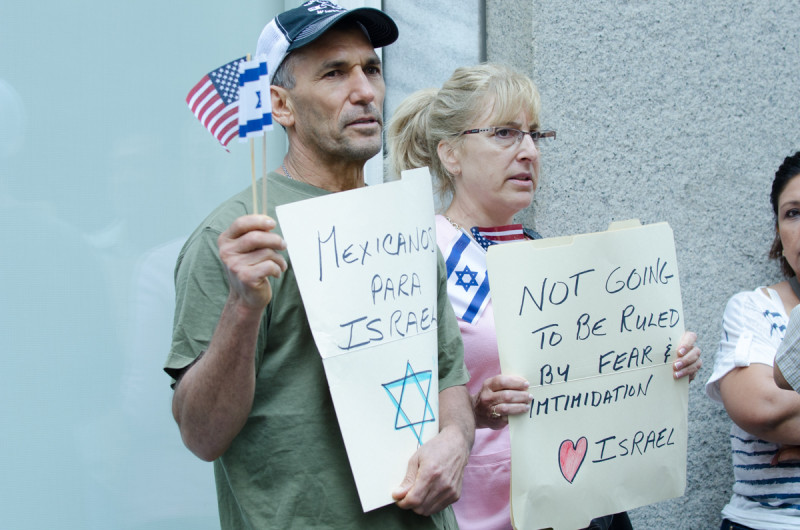 MEXICANOS
PARA
ISRAEL
NOT GOING
TO BE RULED
BY FEAR &
IMTIMIDATION
ISRAEL